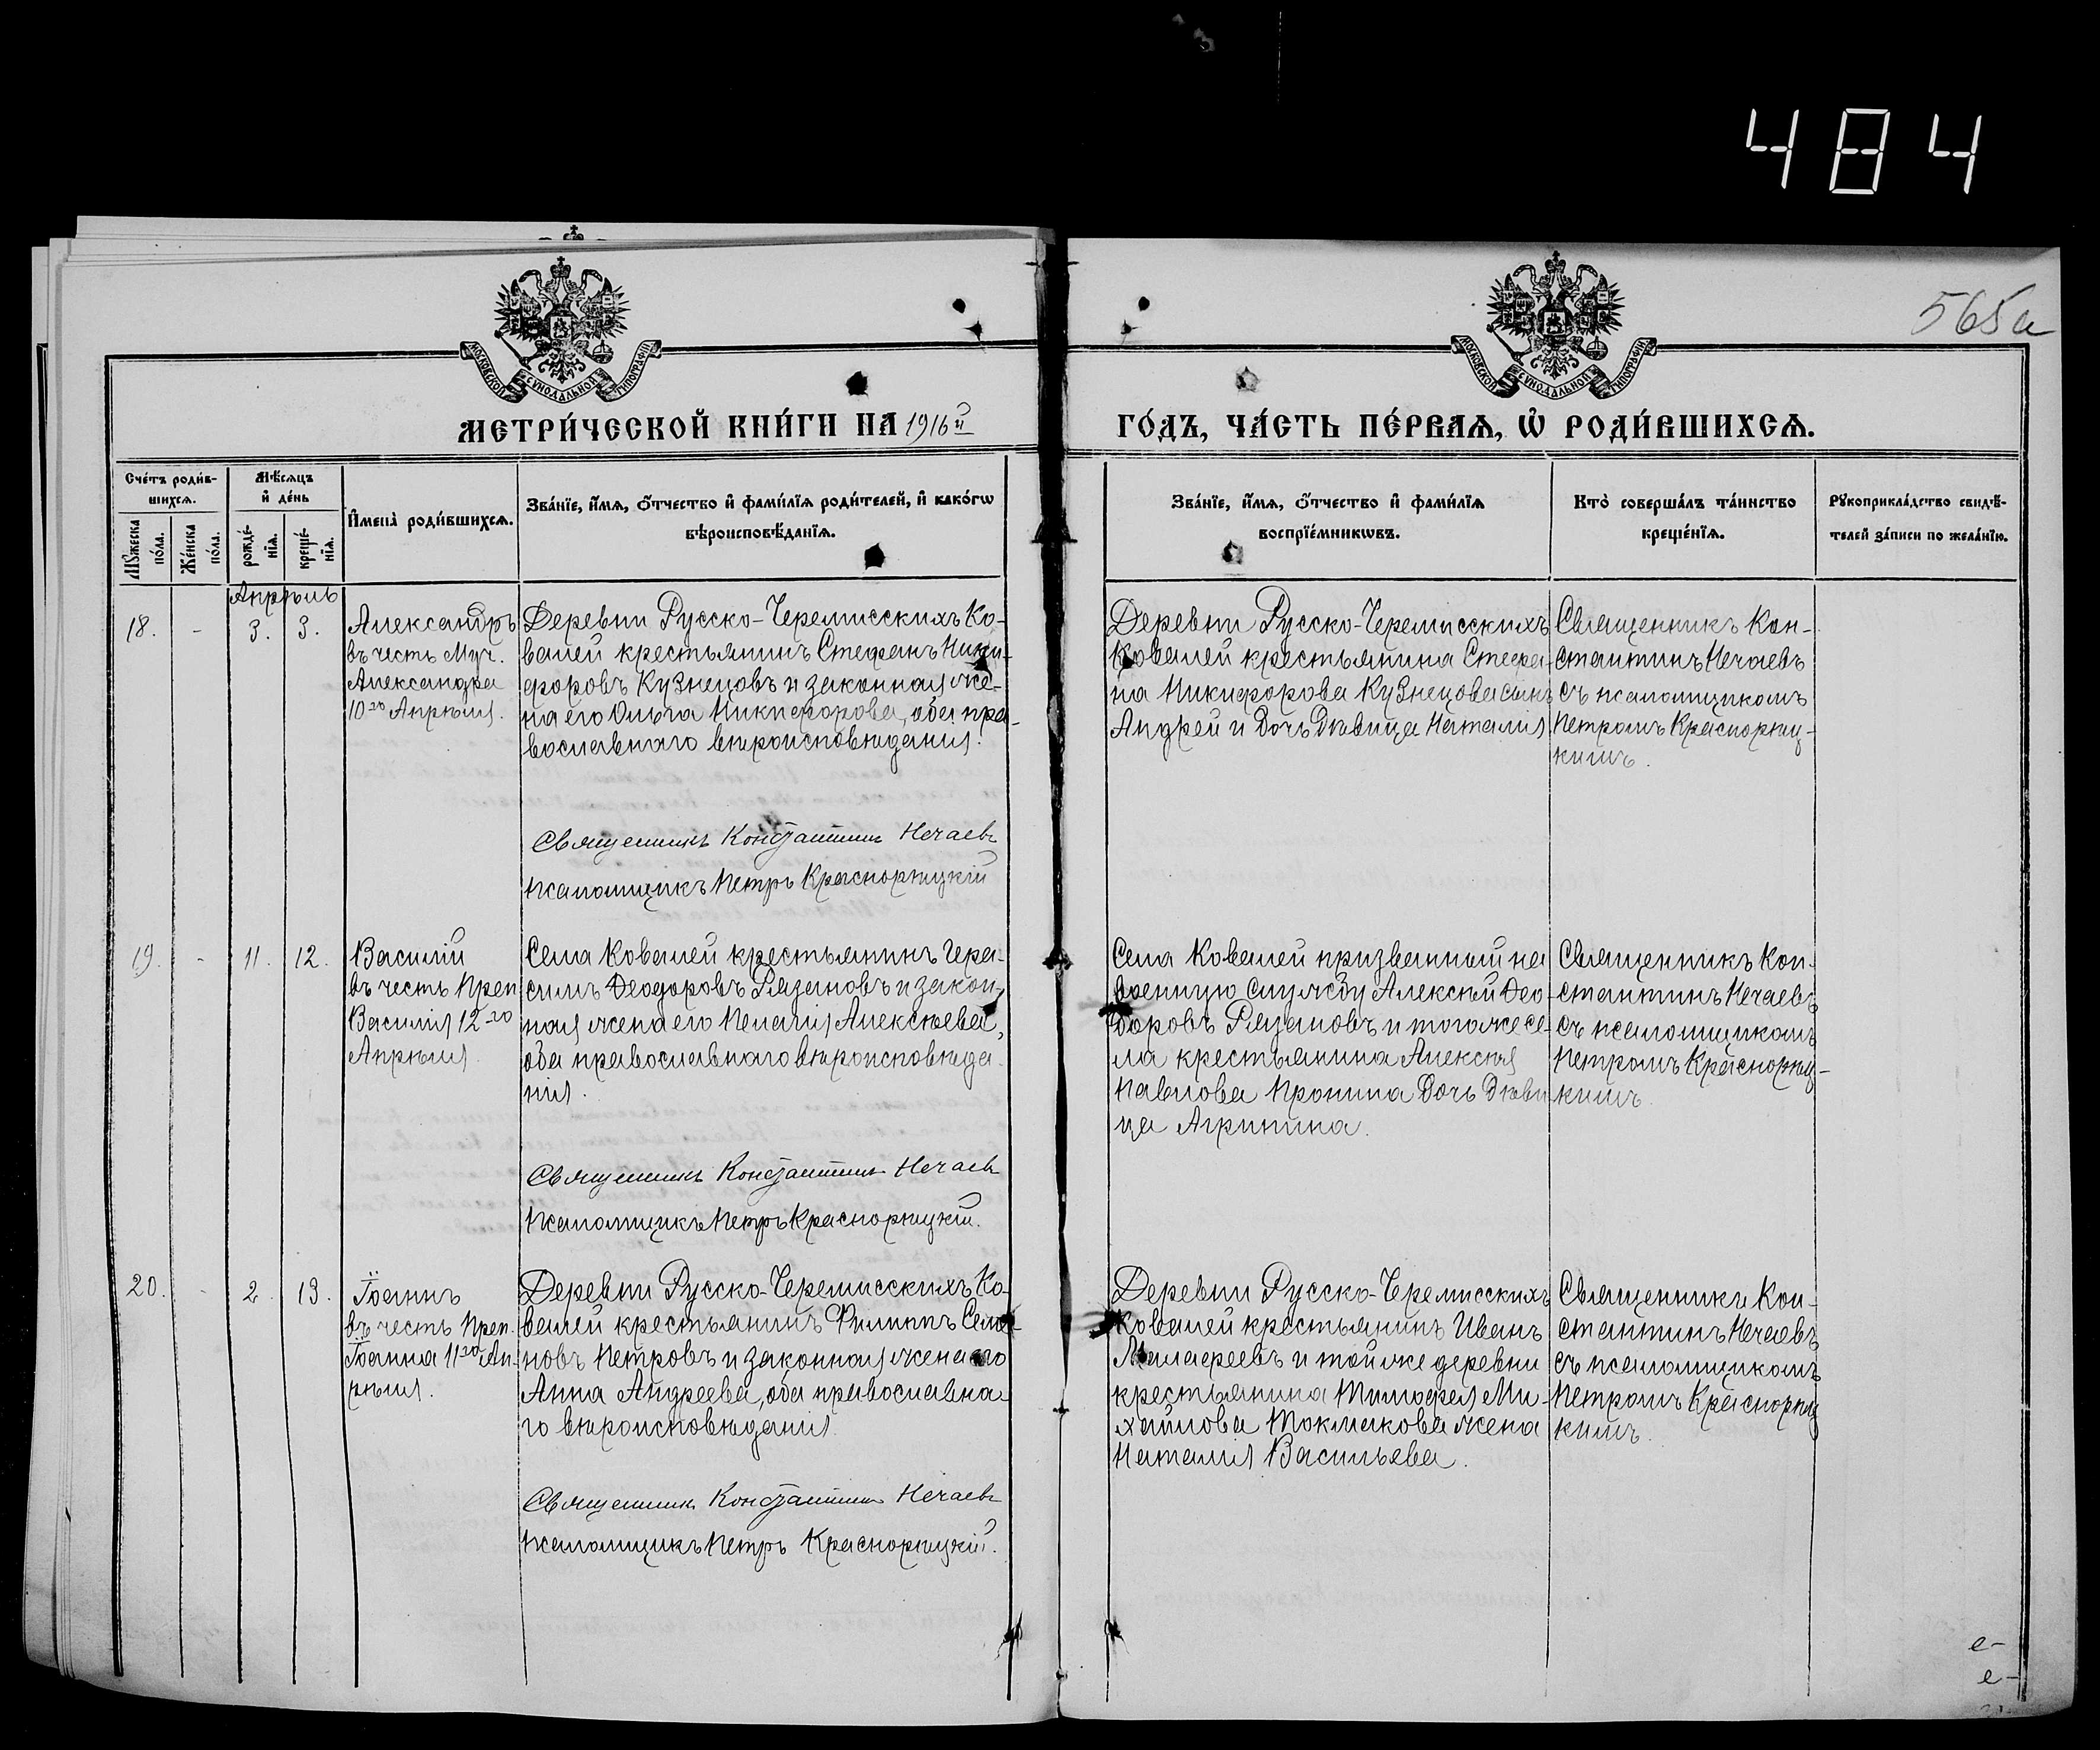 484
565а
МОСКОВСКОЙ СѴНОДАЛЬНОЙ ТИПОГРАФІИ
МОСКОВСКОЙ СѴНОДАЛЬНОЙ ТИПОГРАФІИ
МЕТРИ́ЧЕСКОЙ КНИ́ГИ НА 1916й ГО́ДЪ, ЧА́СТЬ ПЕ́РВАѦ, Ѡ҆ РОДИ́ВШИХСѦ.
Сче́тъ роди́в-
шихсѧ.
Мѣ́сѧцъ
и҆ де́нь
Мꙋ́жеска
по́ла.
Же́нска
по́ла.
рожде́-
нїѧ.
креще́-
нїѧ.
И҆мена̀ роди́вшихсѧ.
Зва́нїе, и҆́мѧ, ѻ҆́тчество и҆ фами́лїѧ роди́телей, и҆ како́гѡ
вѣроисповѣ́данїѧ.
Зва́нїе, и҆́мѧ, ѻ҆́тчество и҆ фами́лїѧ
воспрїе́мникѡвъ.
Кто̀ соверша́лъ та́инство
креще́нїѧ.
Рꙋкоприкла́дство свидѣ́-
телей за́писи по жела́нїю.
Апрѣль
18.
-
3.
3.
Александръ
въ честь Муч.
Александра
10го Апрѣля.
Деревни Русско-Черемисскихъ Ко-
валей крестьянинъ Стефанъ Ники-
форовъ Кузнецовъ и законная же-
на его Ольга Никифорова, оба пра-
вославнаго вѣроисповѣданія.
Священникъ Константинъ Нечаевъ
Псаломщикъ Петръ Краснорѣцкій
Деревни Русско-Черемисскихъ
Ковалей крестьянина Стефа-
на Никифорова Кузнецова сынъ
Андрей и дочь дѣвица Наталія
Священникъ Кон-
стантинъ Нечаевъ
съ псаломщикомъ
Петромъ Краснорѣц-
кимъ.
19.
-
11.
12.
Василій
въ честь Преп
Василія 12го
Апрѣля.
Села Ковалей крестьянинъ Гера-
симъ Ѳеодоровъ Рязановъ и закон-
ная жена его Пелагія Алексѣева,
оба православнаго вѣроисповѣда-
нія.
Священникъ Константинъ Нечаевъ
Псаломщикъ Петръ Краснорѣцкій.
Села Ковалей призванный на
военную службу Алексѣй Ѳео-
доровъ Рязановъ и того же се-
ла крестьянина Алексѣя
Павлова Пронина дочь дѣви
ца Агрипина.
Священникъ Кон-
стантинъ Нечаевъ
съ псаломщикомъ
Петромъ Краснорѣц-
кимъ.
20.
-
2.
13.
Іоаннъ
въ честь Преп.
Іоанна 11го Ап-
рѣля.
Деревни Русско-Черемисскихъ Ко-
валей крестьянинъ Филиппъ Семе-
новъ Петровъ и законная жена его
Анна Андреева, оба православна-
го вѣроисповѣданія.
Священникъ Константинъ Нечаевъ
Псаломщикъ Петръ Краснорѣцкій.
Деревни Русско-Черемисскихъ
Ковалей крестьянинъ Иванъ
и той же деревни
крестьянина Тимофея Ми-
хайлова Токмакова жена
Наталія Васильева.
Священникъ Кон-
стантинъ Нечаевъ
съ псаломщикомъ
Петромъ Краснорѣц
кимъ.
е-
е-